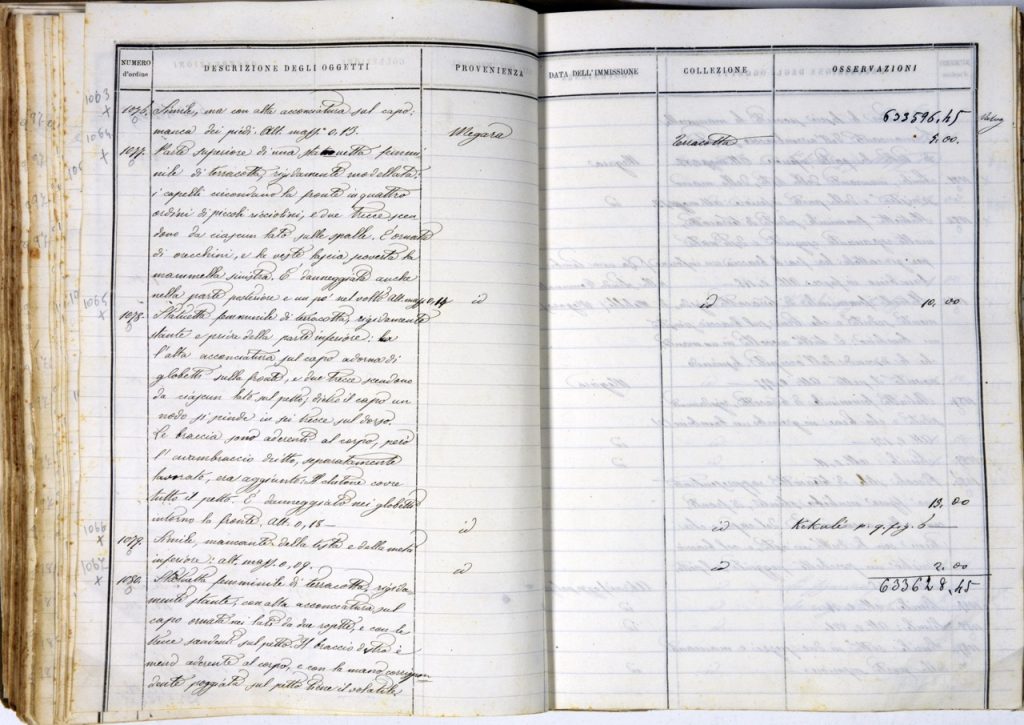 NUMERO d'ordine
DESCRIZIONE DEGLI OGGETTI
PROVENIENZA
DATA DELL'IMMISSIONE
COLLEZIONE
OSSERVAZIONI
1063
633596,45
1076. Simile, ma con alta acconciatura sul capo:
manca dei piedi. Alt. mass.ª 0,13. Megara Terracotta 5.00.
1064
1077. Parte superiore di una statuetta femmi-
nile di terracotta, rigidamente modellata:
i capelli circondano la fronte in quattro
ordini di piccoli ricciolini, e due trecce scen
dono da ciascun lato sulle spalle. È ornata
di orecchini, e la veste lascia scoverta la
mammella sinistra. È danneggiata anche
nella parte posteriore e un po' nel volto. Alt. mass. 0,14 id id 10,00
1065
1078. Statuetta femminile di terracotta, rigidamente
stante e priva della parte inferiore: ha
l'alta acconciatura sul capo adorna di
globetti sulla fronte, e due trecce scendono
da ciascun lato sul petto; dietro il capo un
nodo si divide in sei trecce sul dorso.
Le braccia sono aderenti al corpo, però
l'avambraccio dritto, separatamente
lavorato, era aggiunto. Il chitone covre
tutto il petto. È danneggiata nei globetti
intorno la fronte. Alt. 0,18 — id id Kekulé p. 9. fig. 5 13,00
1066
1079. Simile, mancante della testa e della metà
inferiore: alt. mass. 0,09. id id 2.00
1067
633628,45
1080. Statuetta femminile di terracotta, rigida-
mente stante, con alta acconciatura sul
capo ornata nei lati da due rosette, e con le
trecce scendenti sul petto. Il braccio destro è
meno aderente al corpo, e con la mano corrispon
dente poggiata sul petto tiene il